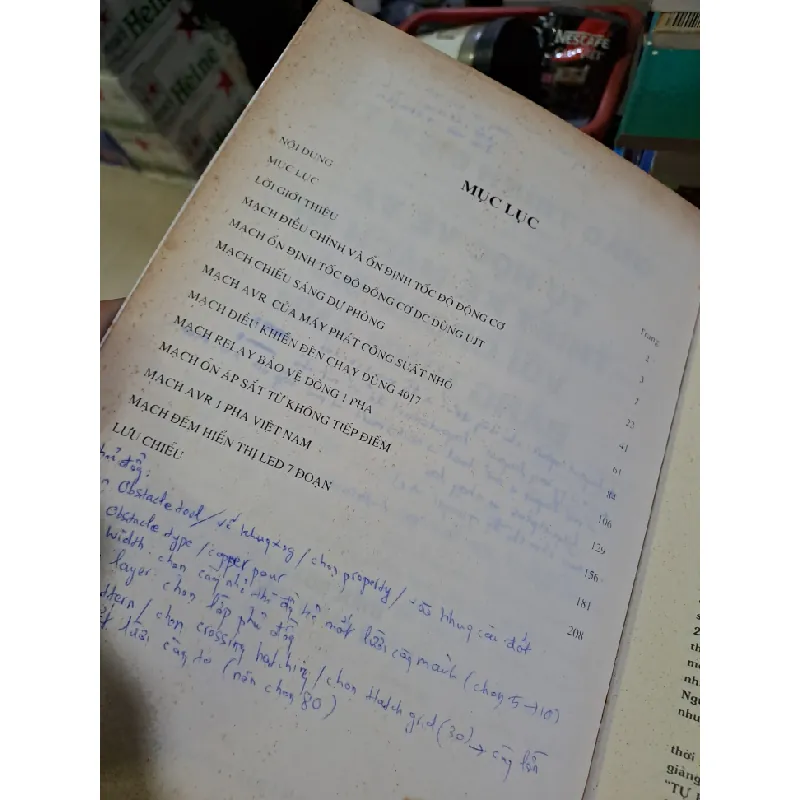 Heine
NESCAFE
MỤC LỤC
NỘI DUNG
Trang
MỤC LỤC
1
LỜI GIỚI THIỆU
3
MẠCH ĐIỀU CHỈNH VÀ ỔN ĐỊNH TỐC ĐỘ ĐỘNG CƠ
MẠCH ỔN ĐỊNH TỐC ĐỘ ĐỘNG CƠ DC DÙNG UJT
22
MẠCH CHIẾU SÁNG DỰ PHÒNG
41
MẠCH AVR CỦA MÁY PHÁT CÔNG SUẤT NHỎ
61
MẠCH ĐIỀU KHIỂN ĐÈN CHẠY DÙNG 4017
84
MẠCH RELAY BẢO VỆ DÒNG 1 PHA
106
MẠCH ỔN ÁP SẮT TỪ KHÔNG TIẾP ĐIỂM
129
MẠCH AVR 1 PHA VIỆT NAM
156
MẠCH ĐẾM HIỂN THỊ LED 7 ĐOẠN
181
LƯU CHIỂU
208
phủ đồng:
Obstacle tool / vẽ khung / chọn property /
Obstacle type / copper pour
width: chọn càng nhỏ thì lưới càng mảnh (chọn 5 → 10)
layer: chọn lớp phủ đồng
/ chọn crossing hatching / chọn Hatch grid (30) → càng lớn
lưới càng to (nên chọn 80)
thời
giảng
"TỰ